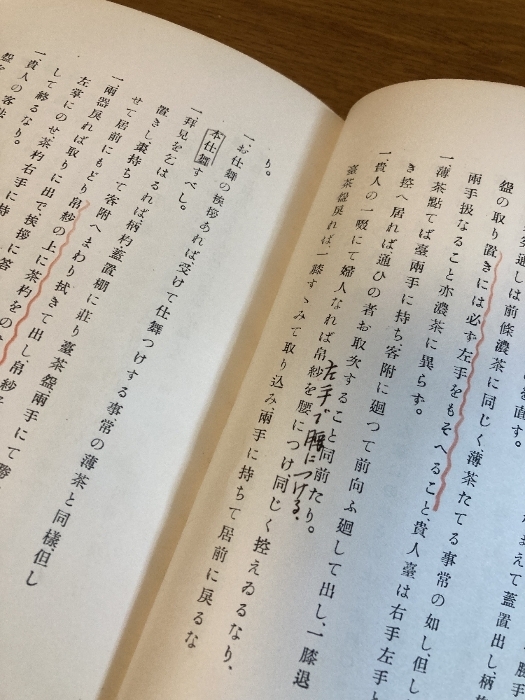 直す。
通しは前條濃茶に同じく薄茶たてる事常の如し、但し
盌の取り置きには必ず左手をもそへること貴人臺は右手左手
兩手扱なること亦濃茶に異らず。
一薄茶點てば臺兩手に持ち客附に廻つて前向ふ廻して出し、一膝退
き控へ居れば通ひの者お取次すること同前たり。
一貴人の一啜にて婦人なれば帛紗を腰につけ、同じく控えゐるなり、
左手で腰につける、
臺茶盌戾れば、一膝すゝみて取り込み、兩手に持ちて居前に戾るな
り。
一お仕舞の挨拶あれば受けて仕舞つけする事常の薄茶と同樣、但し
本仕舞すべし。
一拜見を乞はるれば柄杓、蓋置棚に莊り臺茶盌兩手にて
置きし棗持ちて客附へまわり拭きて出し、帛紗
せて居前にもどり帛紗の上に茶杓をの
一兩器戾れば取りに出で挨拶に答
左掌にのせ茶杓右手に持
して終るなり。
一貴人の客